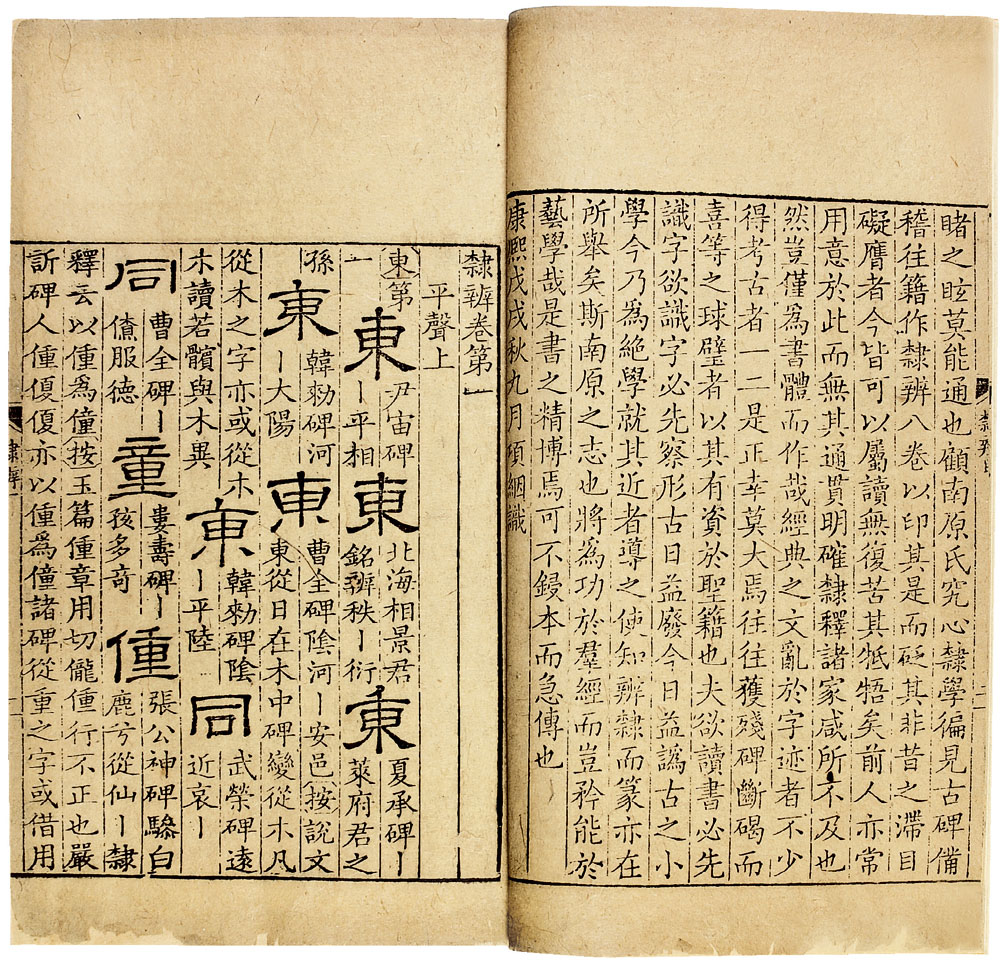 睹之眩莫能通也顧南原氏究心隸學徧見古碑備
稽往籍作隸辨八卷以印其是而砭其非昔之滯目
礙膺者今皆可以屬讀無復苦其牴牾矣前人亦常
用意於此而無其通貫明確隸釋諸家咸所不及也
然豈僅為書體而作哉經典之文亂於字迹者不少
得考古者一二是正幸莫大焉往往獲殘碑斷碣而
喜等之球璧者以其有資於聖籍也夫欲讀書必先
識字欲識字必先察形古日益廢今日益譌古之小
學今乃為絕學就其近者導之使知辨隸而篆亦在
所舉矣斯南原之志也將為功於羣經而豈矜能於
藝學哉是書之精博焉可不鋟本而急傳也
康熙戊戌秋九月項絪識
隸辨卷第一
平聲上
東第一
東 尹宙碑丨平相 東 北海相景君銘辨秩丨衍 東 夏承碑丨萊府君之
孫 東 韓勑碑河丨大陽 東 曹全碑陰河丨安邑按說文東從日在木中碑變從木凡
從木之字亦或從木木讀若髕與木異 東 韓勑碑陰丨平陸 同 武榮碑遠近哀丨
同 曹全碑丨儥服德 童 婁壽碑丨孩多奇 僮 張公神碑驂白鹿兮從仙丨隸
釋云以僮為僮按玉篇僮章用切儱僮行不正也嚴
訢碑人僮優優亦以僮為僮諸碑從重之字或借用
隸辨